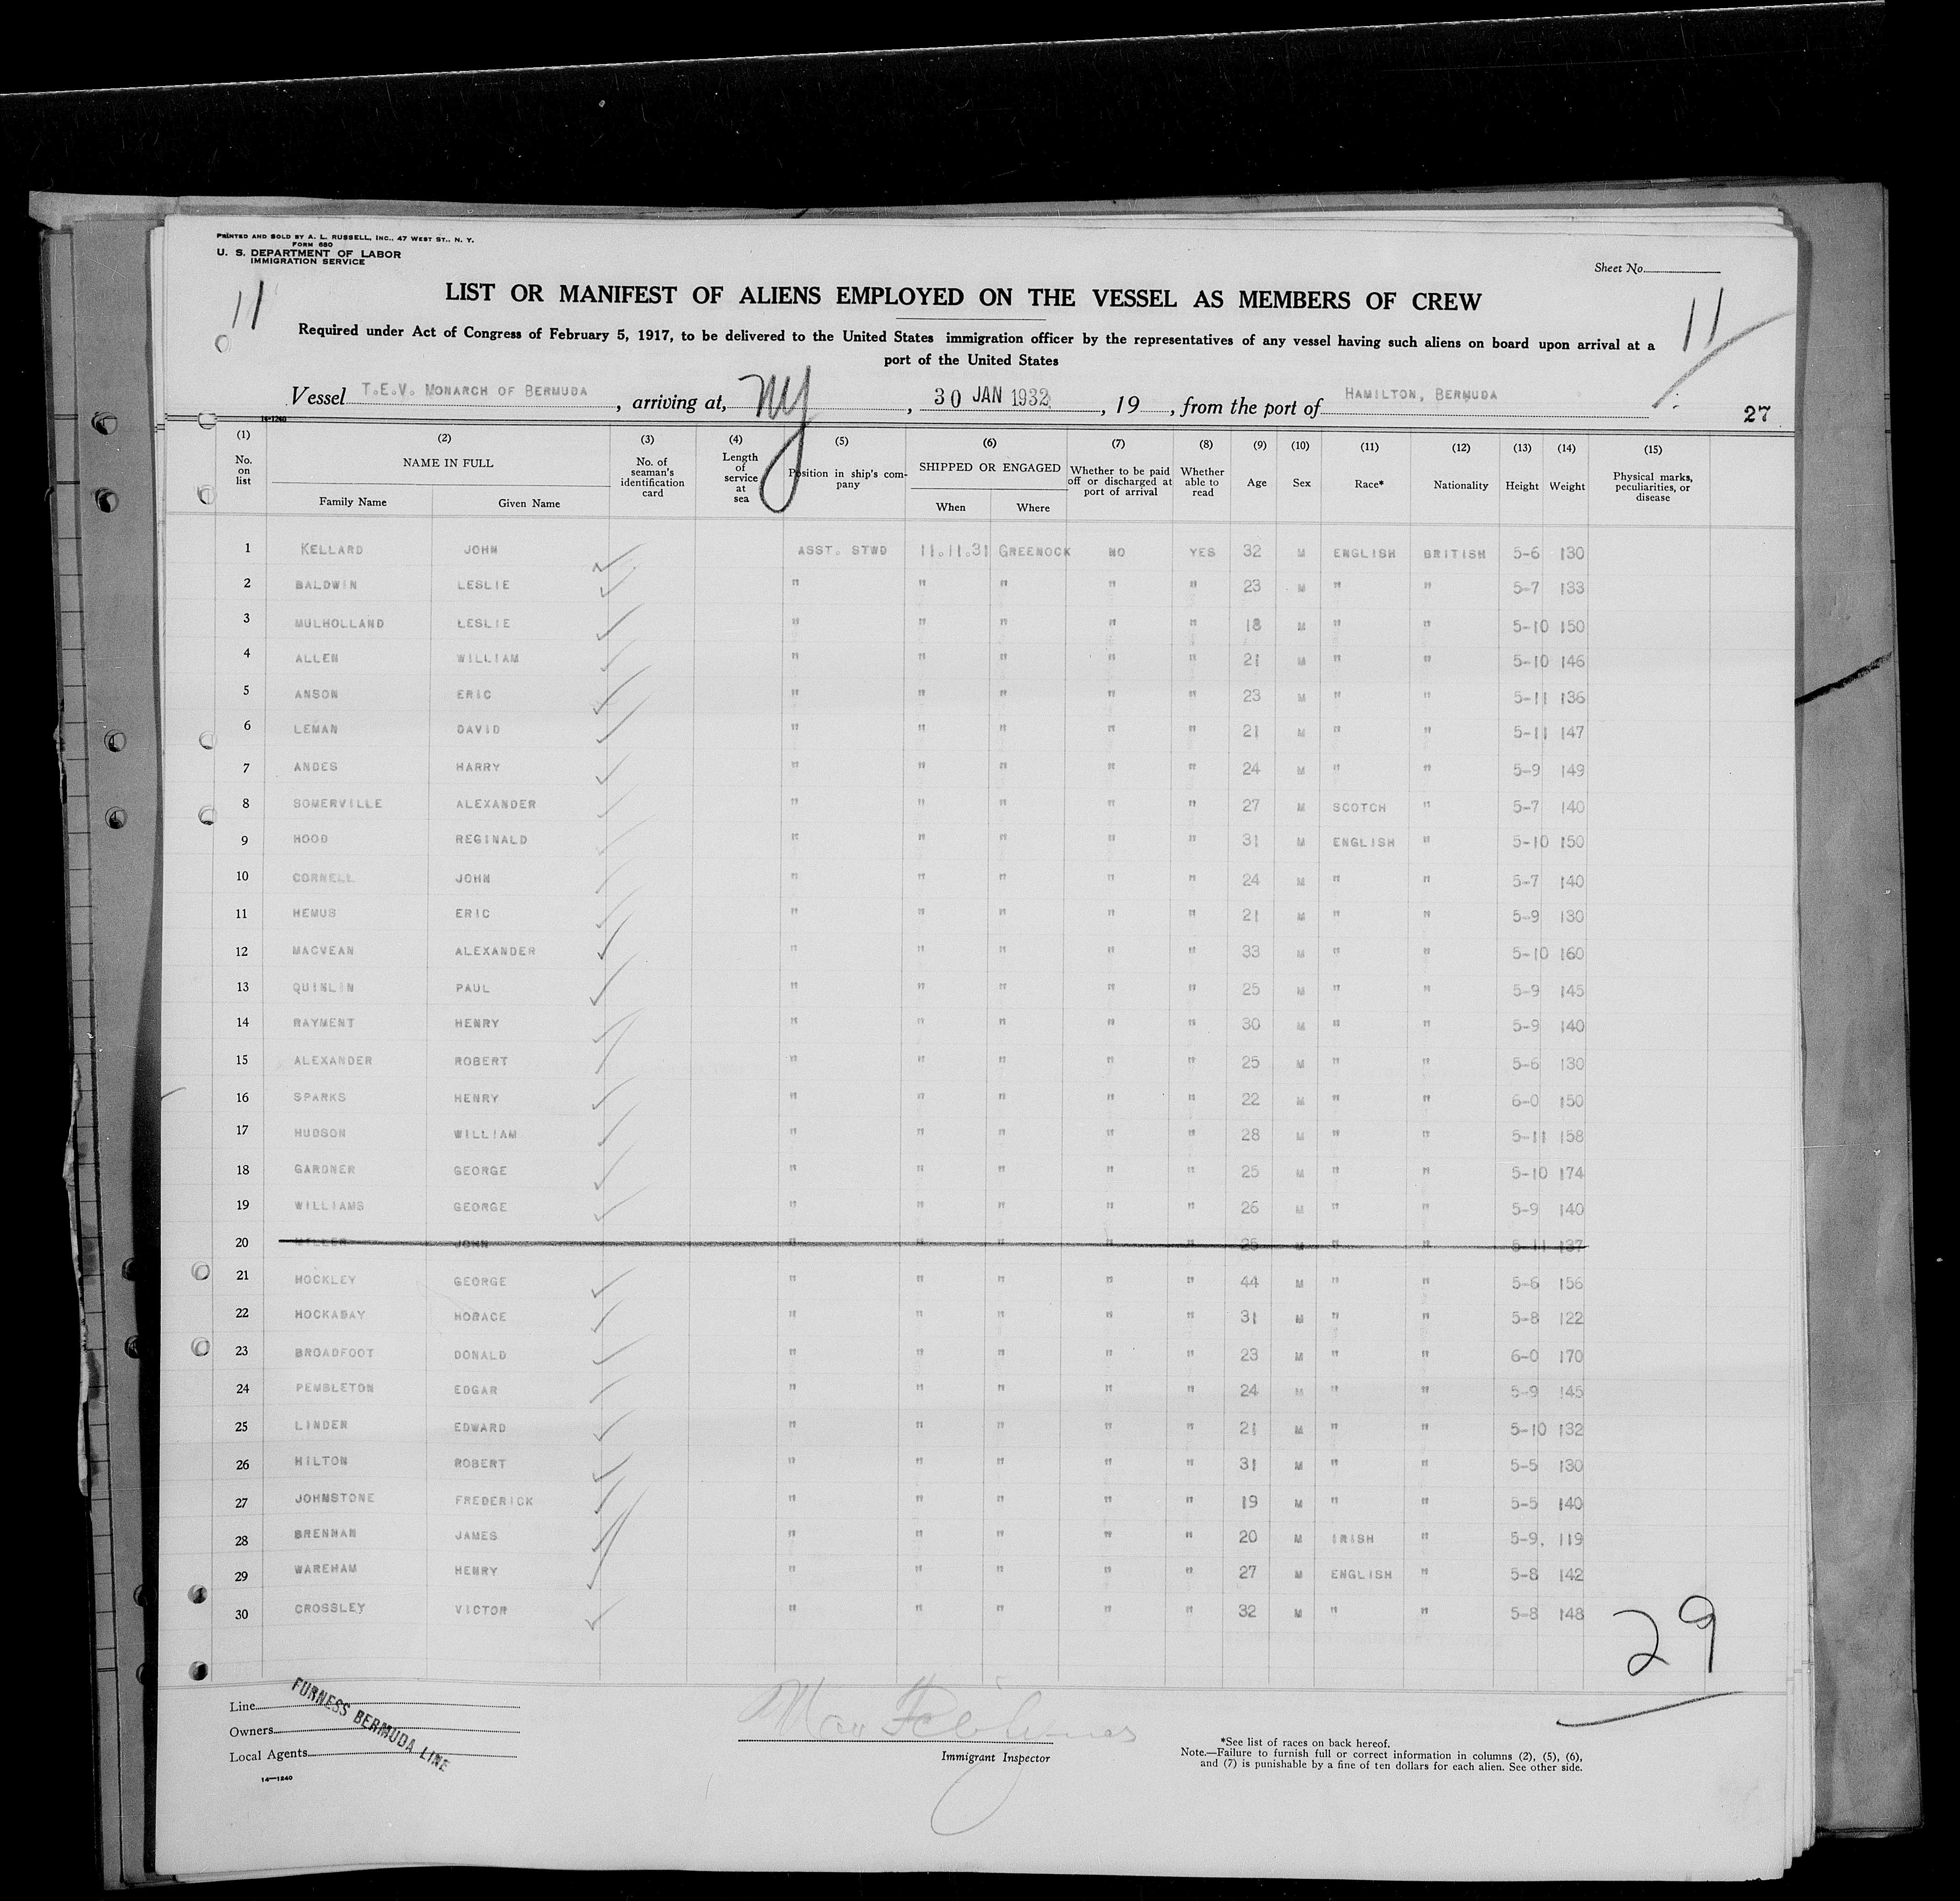 PRINTED AND SOLD BY A. L. RUSSELL, INC., 47 WEST ST., N. Y.
FORM 680
U. S. DEPARTMENT OF LABOR
IMMIGRATION SERVICE
Sheet No.
11
11
LIST OR MANIFEST OF ALIENS EMPLOYED ON THE VESSEL AS MEMBERS OF CREW
Required under Act of Congress of February 5, 1917, to be delivered to the United States immigration officer by the representatives of any vessel having such aliens on board upon arrival at a
port of the United States
Vessel T.E.V. MONARCH OF BERMUDA, arriving at, NY, 30 JAN 1932, 19, from the port of HAMILTON, BERMUDA
27
14-1240
(1) (2) (3) (4) (5) (6) (7) (8) (9) (10) (11) (12) (13) (14) (15)
No. on list NAME IN FULL Family Name Given Name No. of seaman's identification card Length of service at sea Position in ship's company SHIPPED OR ENGAGED When Where Whether to be paid off or discharged at port of arrival Whether able to read Age Sex Race* Nationality Height Weight Physical marks, peculiarities, or disease
1 KELLARD JOHN ASST. STWD 11.11.31 GREENOCK NO YES 32 M ENGLISH BRITISH 5-6 130
2 BALDWIN LESLIE " " " " " 23 M " " 5-7 133
3 MULHOLLAND LESLIE " " " " " 18 M " " 5-10 150
4 ALLEN WILLIAM " " " " " 21 M " " 5-10 146
5 ANSON ERIC " " " " " 23 M " " 5-11 136
6 LEMAN DAVID " " " " " 21 M " " 5-11 147
7 ANDES HARRY " " " " " 24 M " " 5-9 149
8 SOMERVILLE ALEXANDER " " " " " 27 M SCOTCH " 5-7 140
9 HOOD REGINALD " " " " " 31 M ENGLISH " 5-10 150
10 CORNELL JOHN " " " " " 24 M " " 5-7 140
11 HEMUS ERIC " " " " " 21 M " " 5-9 130
12 MACVEAN ALEXANDER " " " " " 33 M " " 5-10 160
13 QUINLIN PAUL " " " " " 25 M " " 5-9 145
14 RAYMENT HENRY " " " " " 30 M " " 5-9 140
15 ALEXANDER ROBERT " " " " " 25 M " " 5-6 130
16 SPARKS HENRY " " " " " 22 M " " 6-0 150
17 HUDSON WILLIAM " " " " " 28 M " " 5-11 158
18 GARDNER GEORGE " " " " " 25 M " " 5-10 174
19 WILLIAMS GEORGE " " " " " 26 M " " 5-9 140
20 MILLER JOHN " " " " " 25 M " " 5-11 137
21 HOCKLEY GEORGE " " " " " 44 M " " 5-6 156
22 HOCKADAY HORACE " " " " " 31 M " " 5-8 122
23 BROADFOOT DONALD " " " " " 23 M " " 6-0 170
24 PEMBLETON EDGAR " " " " " 24 M " " 5-9 145
25 LINDEN EDWARD " " " " " 21 M " " 5-10 132
26 HILTON ROBERT " " " " " 31 M " " 5-5 130
27 JOHNSTONE FREDERICK " " " " " 19 M " " 5-5 140
28 BRENNAN JAMES " " " " " 20 M IRISH " 5-9. 119
29 WAREHAM HENRY " " " " " 27 M ENGLISH " 5-8 142
30 CROSSLEY VICTOR " " " " " 32 M " " 5-8 148
29
Line
Owners
Local Agents
FURNESS BERMUDA LINE
14—1240
Immigrant Inspector
*See list of races on back hereof.
Note.—Failure to furnish full or correct information in columns (2), (5), (6),
and (7) is punishable by a fine of ten dollars for each alien. See other side.